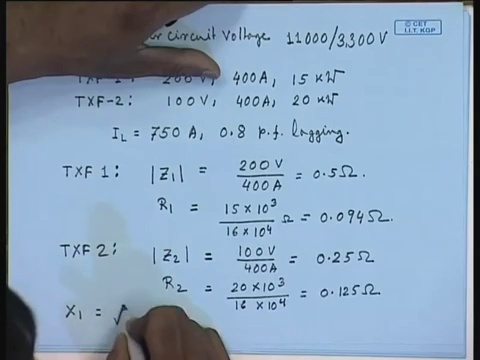 circuit Voltage 11000/3,300V
© CET
I.I.T. KGP
TXF-1: 200V, 400A, 15 KW
TXF-2: 100V, 400A, 20 KW
I_L = 750 A, 0.8 p.f. lagging.
TXF 1: |Z₁| = 200 V / 400 A = 0.5 Ω.
R₁ = 15 × 10³ / 16 × 10⁴ Ω = 0.094 Ω.
TXF 2: |Z₂| = 100 V / 400 A = 0.25 Ω
R₂ = 20 × 10³ / 16 × 10⁴ = 0.125 Ω
X₁ = √